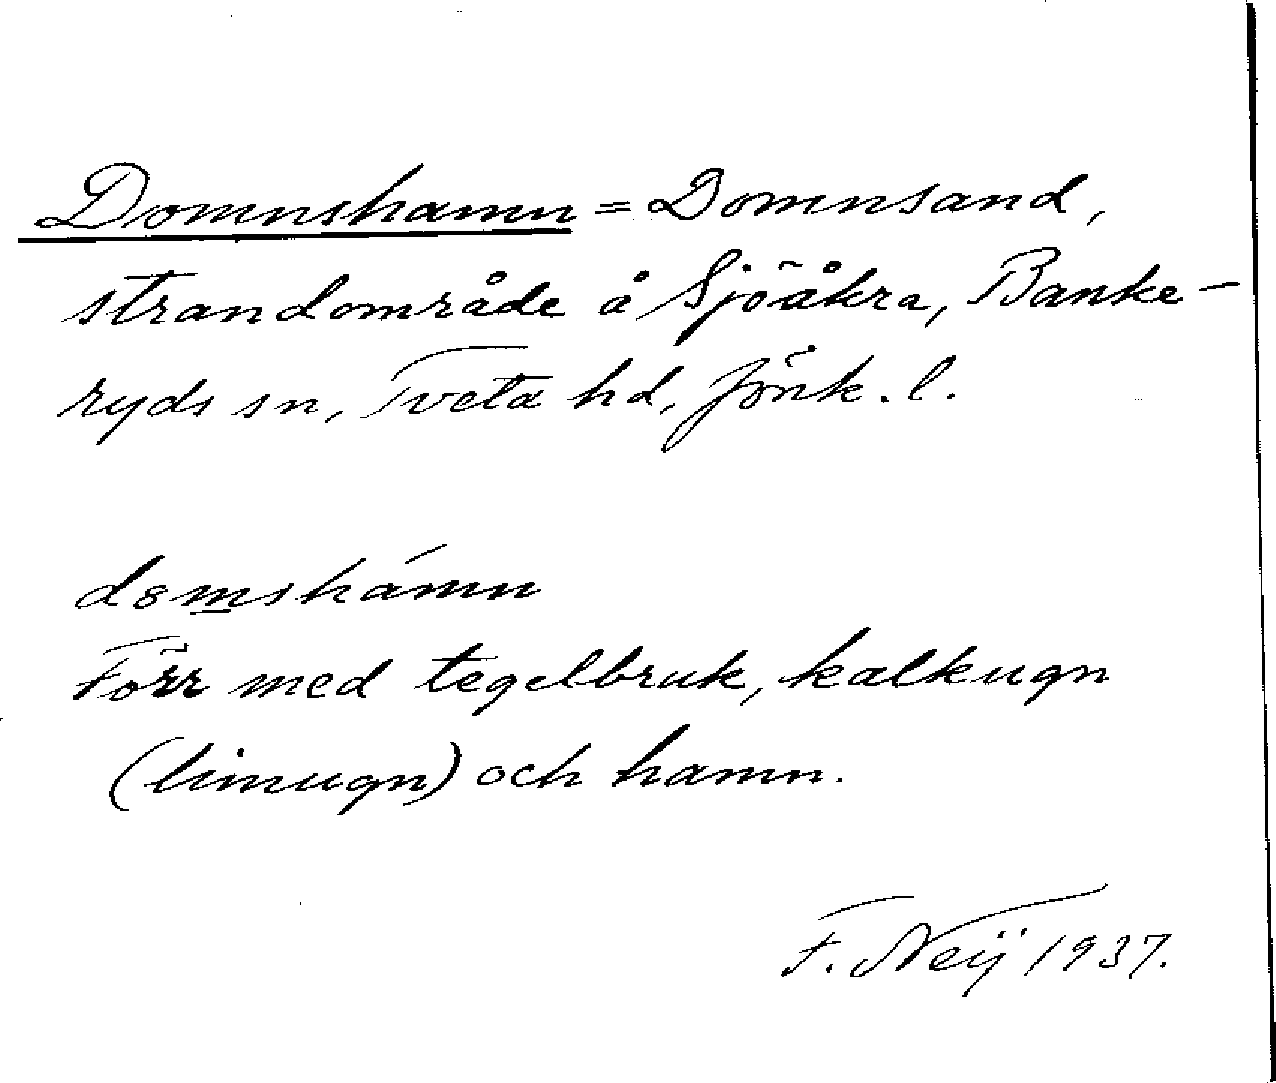 Domnshamn = Domnsand,
strandområde å Sjöåkra, Banke-
ryds sn, Tveta hd, Jönk. l.
domshámn
Förr med tegelbruk, kalkugn
(limugn) och hamn.
F. Neij 1937.